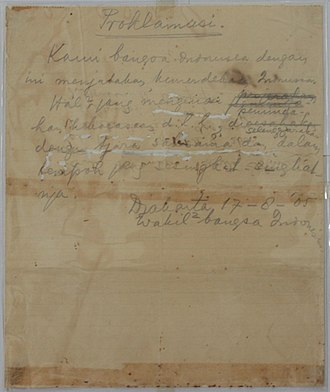 Proklamasi.
Kami bangsa Indonesia dengan
ini menjatakan kemerdekaan Indonesia.
Hal² jang mengenai
peminda-
han kekoeasaan, d.l.l.,
diselenggarakan
dengan tjara saksama dan dalam
tempoh jang sesingkat-singkat
nja.
Djakarta, 17-8-'05
Wakil² bangsa Indonesia.